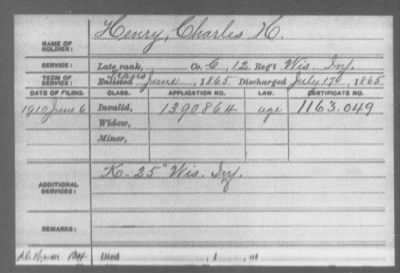 Henry, Charles H.
NAME OF SOLDIER:
SERVICE: Late rank, Co. G, 12 Reg't Wis. Inf.
Trans
TERM OF SERVICE: Enlisted June, 1865 Discharged July 17, 1865
DATE OF FILING. CLASS. APPLICATION NO. LAW. CERTIFICATE NO.
1910 June 6 Invalid, 1390864 age 1163.049
Widow,
Minor,
K. 25" Wis. Inf.
ADDITIONAL SERVICES:
REMARKS:
Died , 1 , at